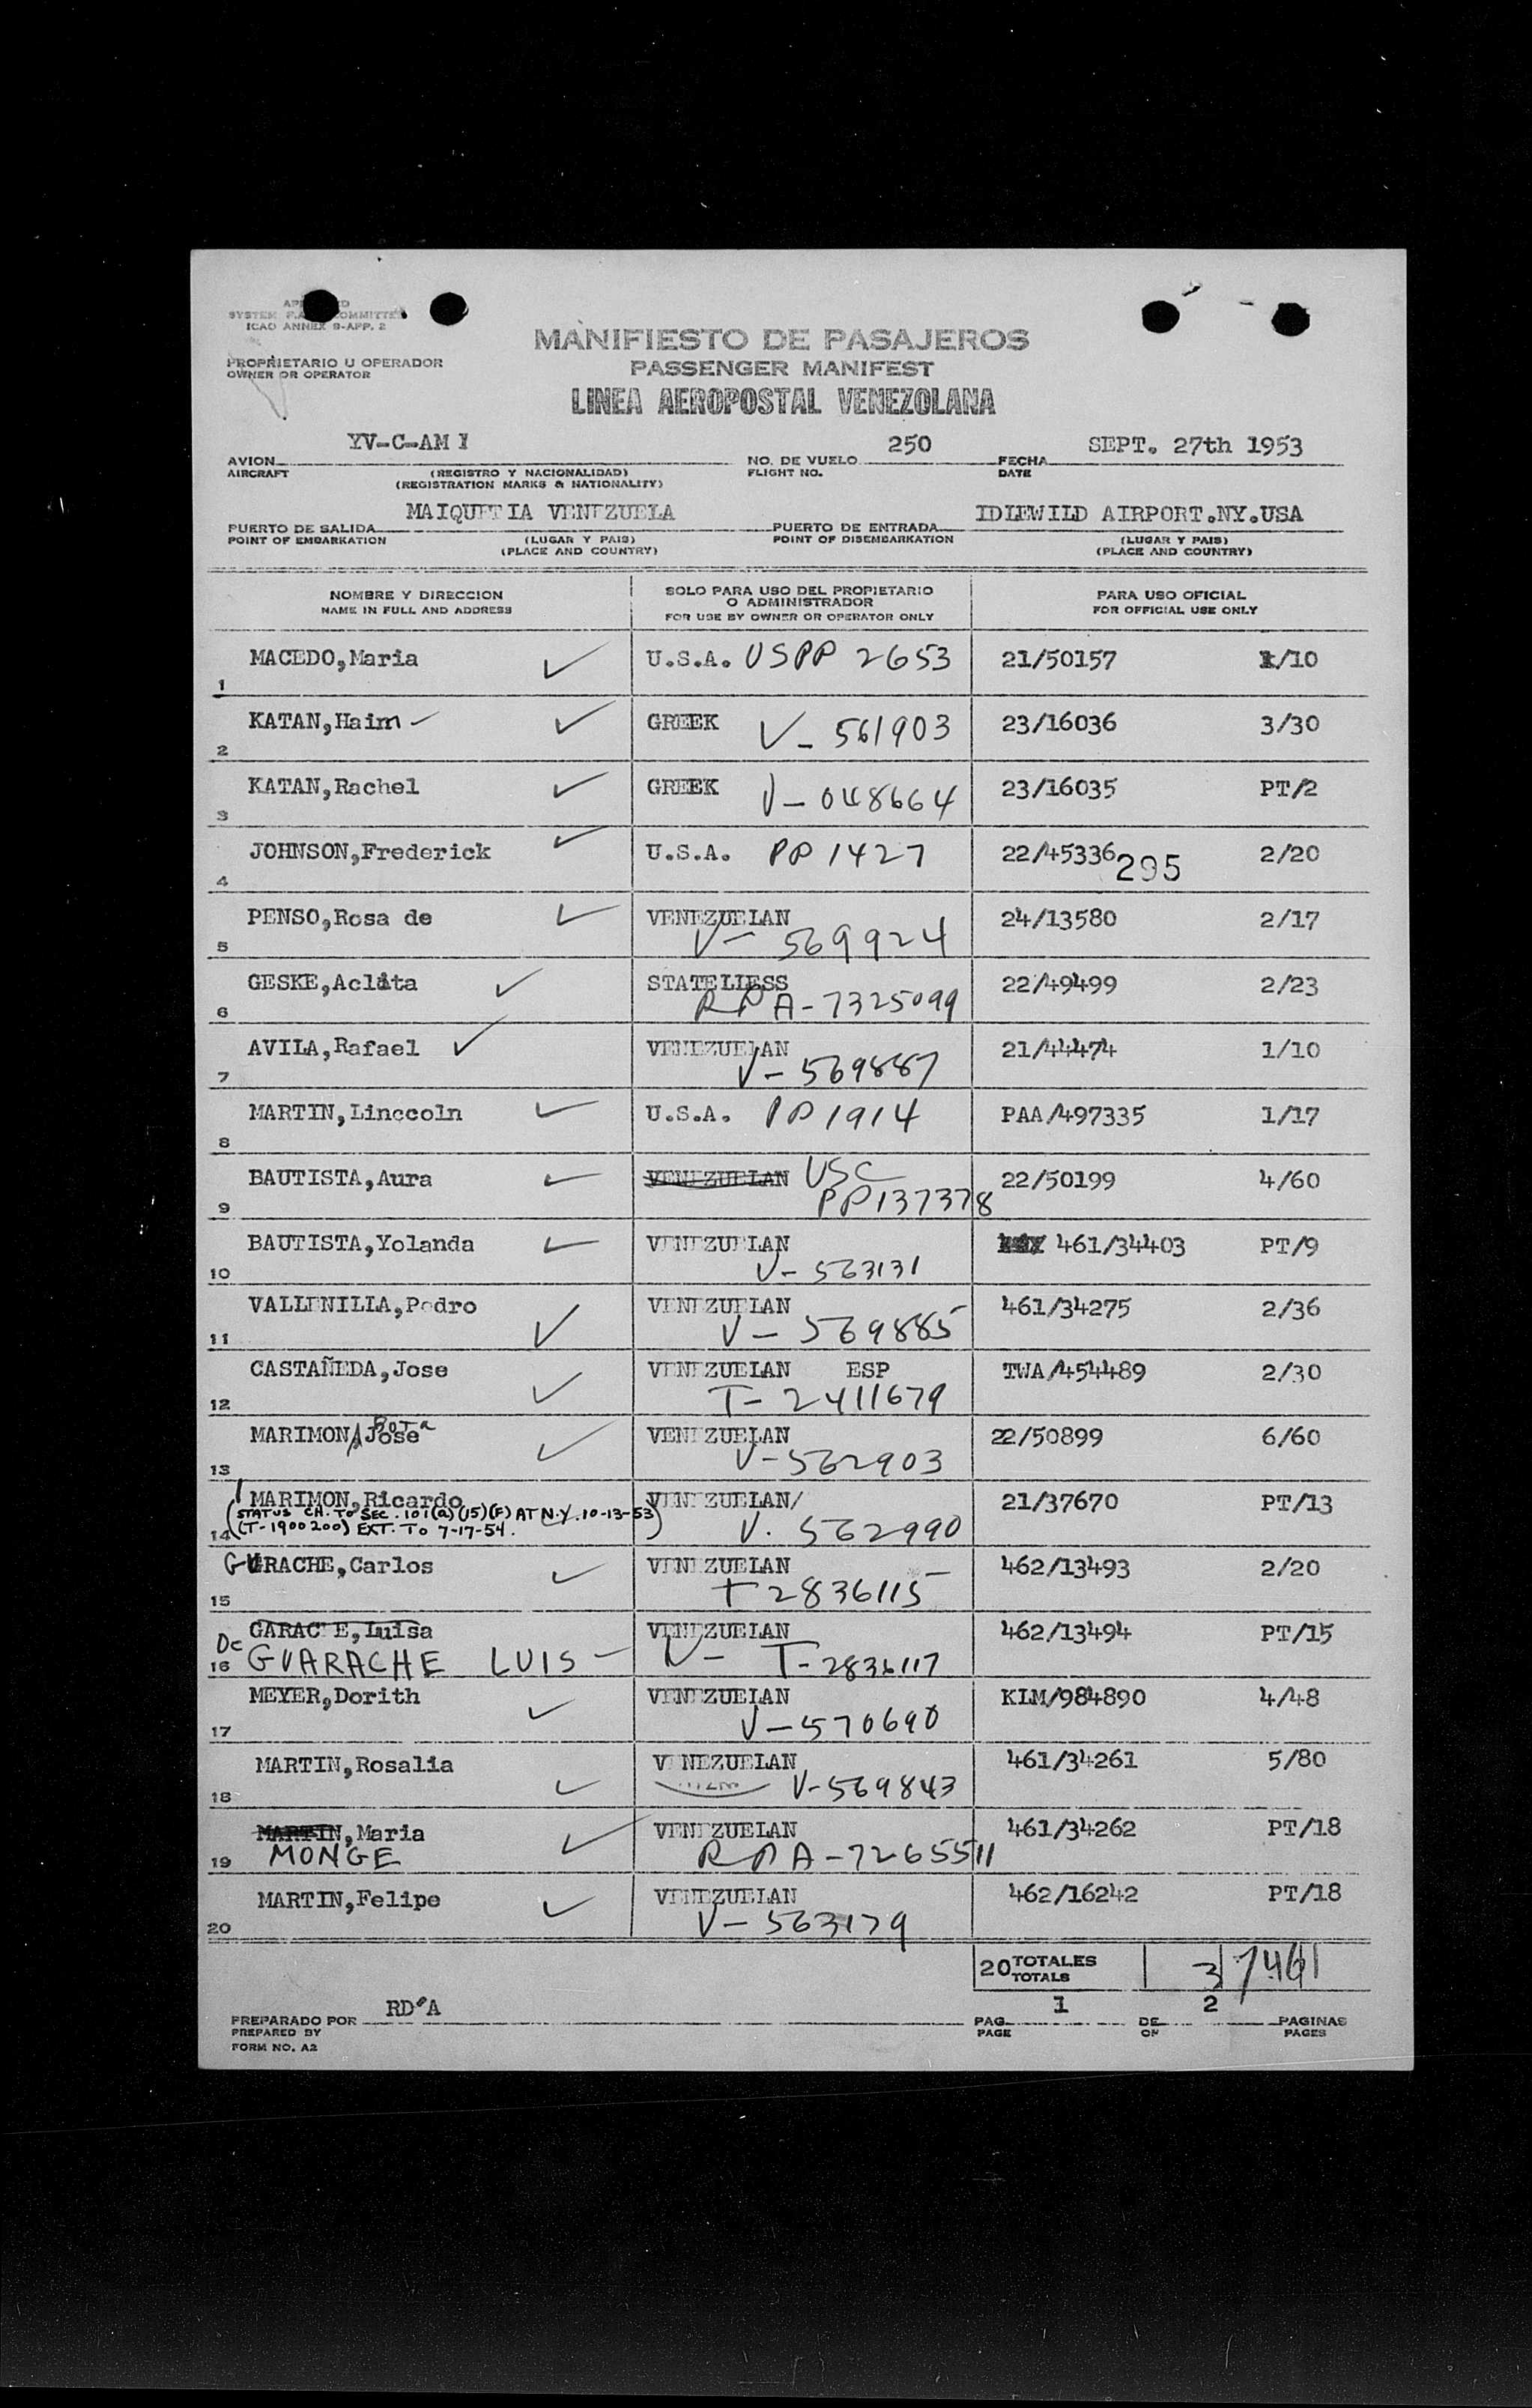 MANIFIESTO DE PASAJEROS
PASSENGER MANIFEST
LINEA AEROPOSTAL VENEZOLANA
ICAO ANNEX 9-APP. 2
PROPRIETARIO U OPERADOR
OWNER OR OPERATOR
AVION YV-C-AM I NO. DE VUELO 250 FECHA SEPT. 27th 1953
AIRCRAFT (REGISTRO Y NACIONALIDAD) FLIGHT NO. DATE
(REGISTRATION MARKS & NATIONALITY)
PUERTO DE SALIDA MAIQUETIA VENEZUELA PUERTO DE ENTRADA IDLEWILD AIRPORT.NY.USA
POINT OF EMBARKATION (LUGAR Y PAIS) POINT OF DISEMBARKATION (LUGAR Y PAIS)
(PLACE AND COUNTRY) (PLACE AND COUNTRY)
NOMBRE Y DIRECCION SOLO PARA USO DEL PROPIETARIO O ADMINISTRADOR PARA USO OFICIAL
NAME IN FULL AND ADDRESS FOR USE BY OWNER OR OPERATOR ONLY FOR OFFICIAL USE ONLY
1 MACEDO,Maria U.S.A. USPP 2653 21/50157 1/10
2 KATAN,Haim GREEK V- 561903 23/16036 3/30
3 KATAN,Rachel GREEK V-048664 23/16035 PT/2
4 JOHNSON,Frederick U.S.A. PP 1427 22/45336 295 2/20
5 PENSO,Rosa de VENEZUELAN V- 569924 24/13580 2/17
6 GESKE,Aclita STATELIESS RPA-7325099 22/49499 2/23
7 AVILA,Rafael VENEZUELAN V- 569887 21/44474 1/10
8 MARTIN,Linccoln U.S.A. PP 1914 PAA/497335 1/17
9 BAUTISTA,Aura VENEZUELAN USC PP137378 22/50199 4/60
10 BAUTISTA,Yolanda VENEZUELAN V- 563131 461/34403 PT/9
11 VALLENILLA,Pedro VENEZUELAN V- 569885 461/34275 2/36
12 CASTAÑEDA,Jose VENEZUELAN ESP T- 2411679 TWA/454489 2/30
13 MARIMON,Jose VENEZUELAN V-562903 22/50899 6/60
14 MARIMON,Ricardo VENEZUELAN/ V. 562990 21/37670 PT/13
(STATUS CH. TO SEC. 101(a)(15)(F) AT N.Y. 10-13-53)
(T-1900200) EXT. TO 7-17-54.
15 GURACHE,Carlos VENEZUELAN T 2836115 462/13493 2/20
16 GARACHE,Luisa VENEZUELAN V- T-2836117 462/13494 PT/15
De GUARACHE LUIS
17 MEYER,Dorith VENEZUELAN V-570690 KLM/984890 4/48
18 MARTIN,Rosalia VENEZUELAN V-569843 461/34261 5/80
19 MARTIN,Maria VENEZUELAN RPA-7265511 461/34262 PT/18
MONGE
20 MARTIN,Felipe VENEZUELAN V-563179 462/16242 PT/18
20 TOTALES
TOTALS
PREPARADO POR RD'A PAG. 1 DE 2 PAGINAS
PREPARED BY PAGE OF PAGES
FORM NO. A2